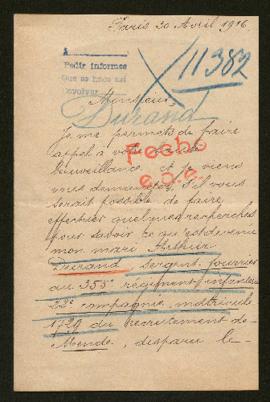 Paris 30 Avril 1916
A
Pedir informes
Que se hace así
Devolver
11382
Monsieur,
Durand
je me permets de faire
appel à votre
bienveillance, et je viens
vous demander, s'il vous
serait possible de faire
effectuer quelques recherches
pour savoir ce qu'est devenu
mon mari Arthur
Durand Sergent fourrier
au 355e régiment infanterie
22e compagnie, matricule
1729 du recrutement de
Mende, disparu le
Fecho